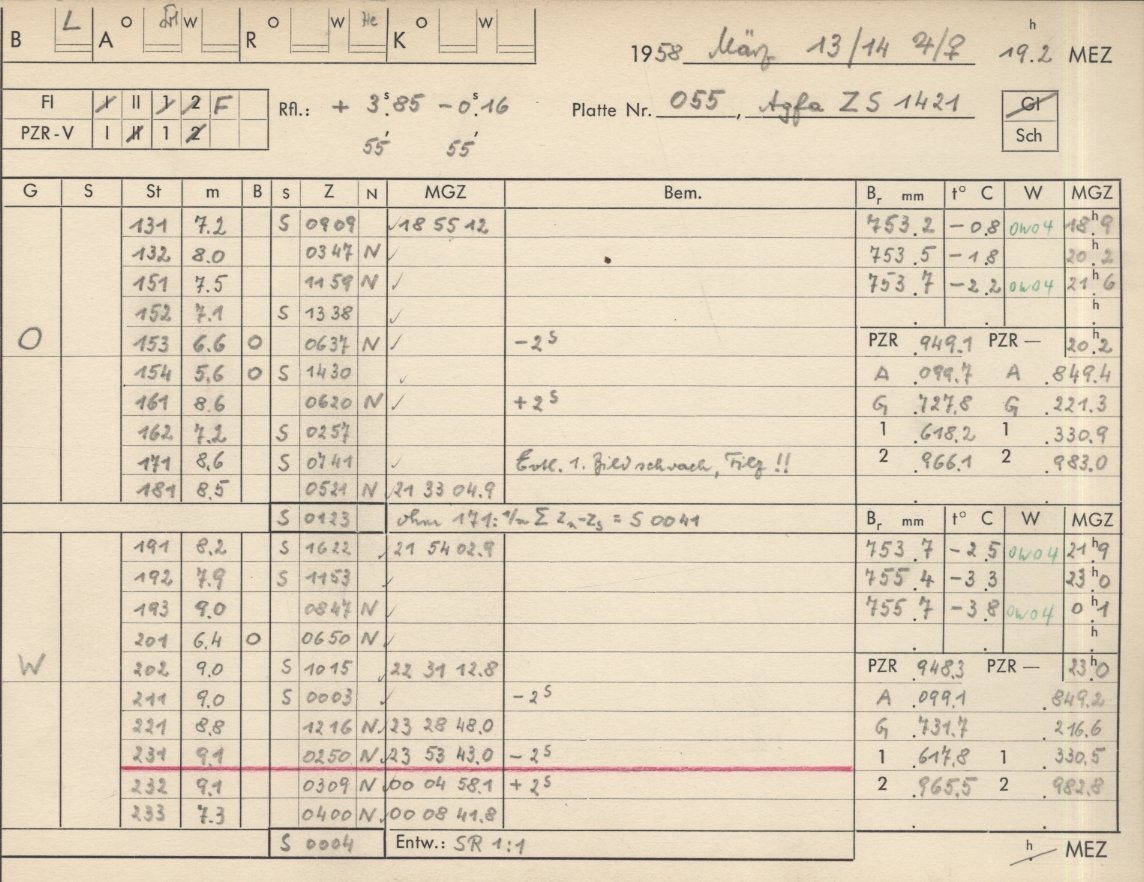 B L A O W R O W He K O W
1958 März 13/14 ♃/♀ 19.2 h MEZ
FI I II 1 2 F
PZR-V I II 1 2
Rfl.: + 3.s85 - 0.s16
55' 55'
Platte Nr. 055, Agfa ZS 1421
Gl
Sch
G S St m B S Z N MGZ Bem. Br mm t° C W MGZ
131 7.2 S 0909 ✓18 55 12 753.2 -0.8 0W04 18.h9
132 8.0 0347 N ✓ 753.5 -1.8 20.2
151 7.5 1159 N ✓ 753.7 -2.2 0W04 21.h6
152 7.1 S 1338 ✓ . . . h
O 153 6.6 O 0637 N ✓ -2s PZR .949.1 PZR — 20.h2
154 5.6 O S 1430 ✓ A .099.7 A .849.4
161 8.6 0620 N ✓ +2s G .727.8 G .221.3
162 7.2 S 0257 1 .618.2 1 .330.9
171 8.6 S 0741 ✓ Evtl. 1. Bild schwach, Filz !! 2 .966.1 2 .983.0
181 8.5 0521 N ✓21 33 04.9
S 0123 ohne 171: 1/n Σ Zn-Zs = S 0041 Br mm t° C W MGZ
191 8.2 S 1622 ✓21 54 02.9 753.7 -2.5 0W04 21.h9
192 7.9 S 1153 ✓ 755.4 -3.3 23.h0
193 9.0 0847 N ✓ 755.7 -3.8 0W04 0.h1
201 6.4 O 0650 N ✓ . . . h
W 202 9.0 S 1015 22 31 12.8 PZR .948.3 PZR — 23.h0
211 9.0 S 0003 ✓ -2s A .099.1 .849.2
221 8.8 1216 N ✓23 28 48.0 G .731.7 .216.6
231 9.1 0250 N ✓23 53 43.0 -2s 1 .617.8 1 .330.5
232 9.1 0309 N ✓00 04 58.1 +2s 2 .965.5 2 .982.8
233 7.3 0400 N ✓00 08 41.8
S 0004 Entw.: SR 1:1 h MEZ